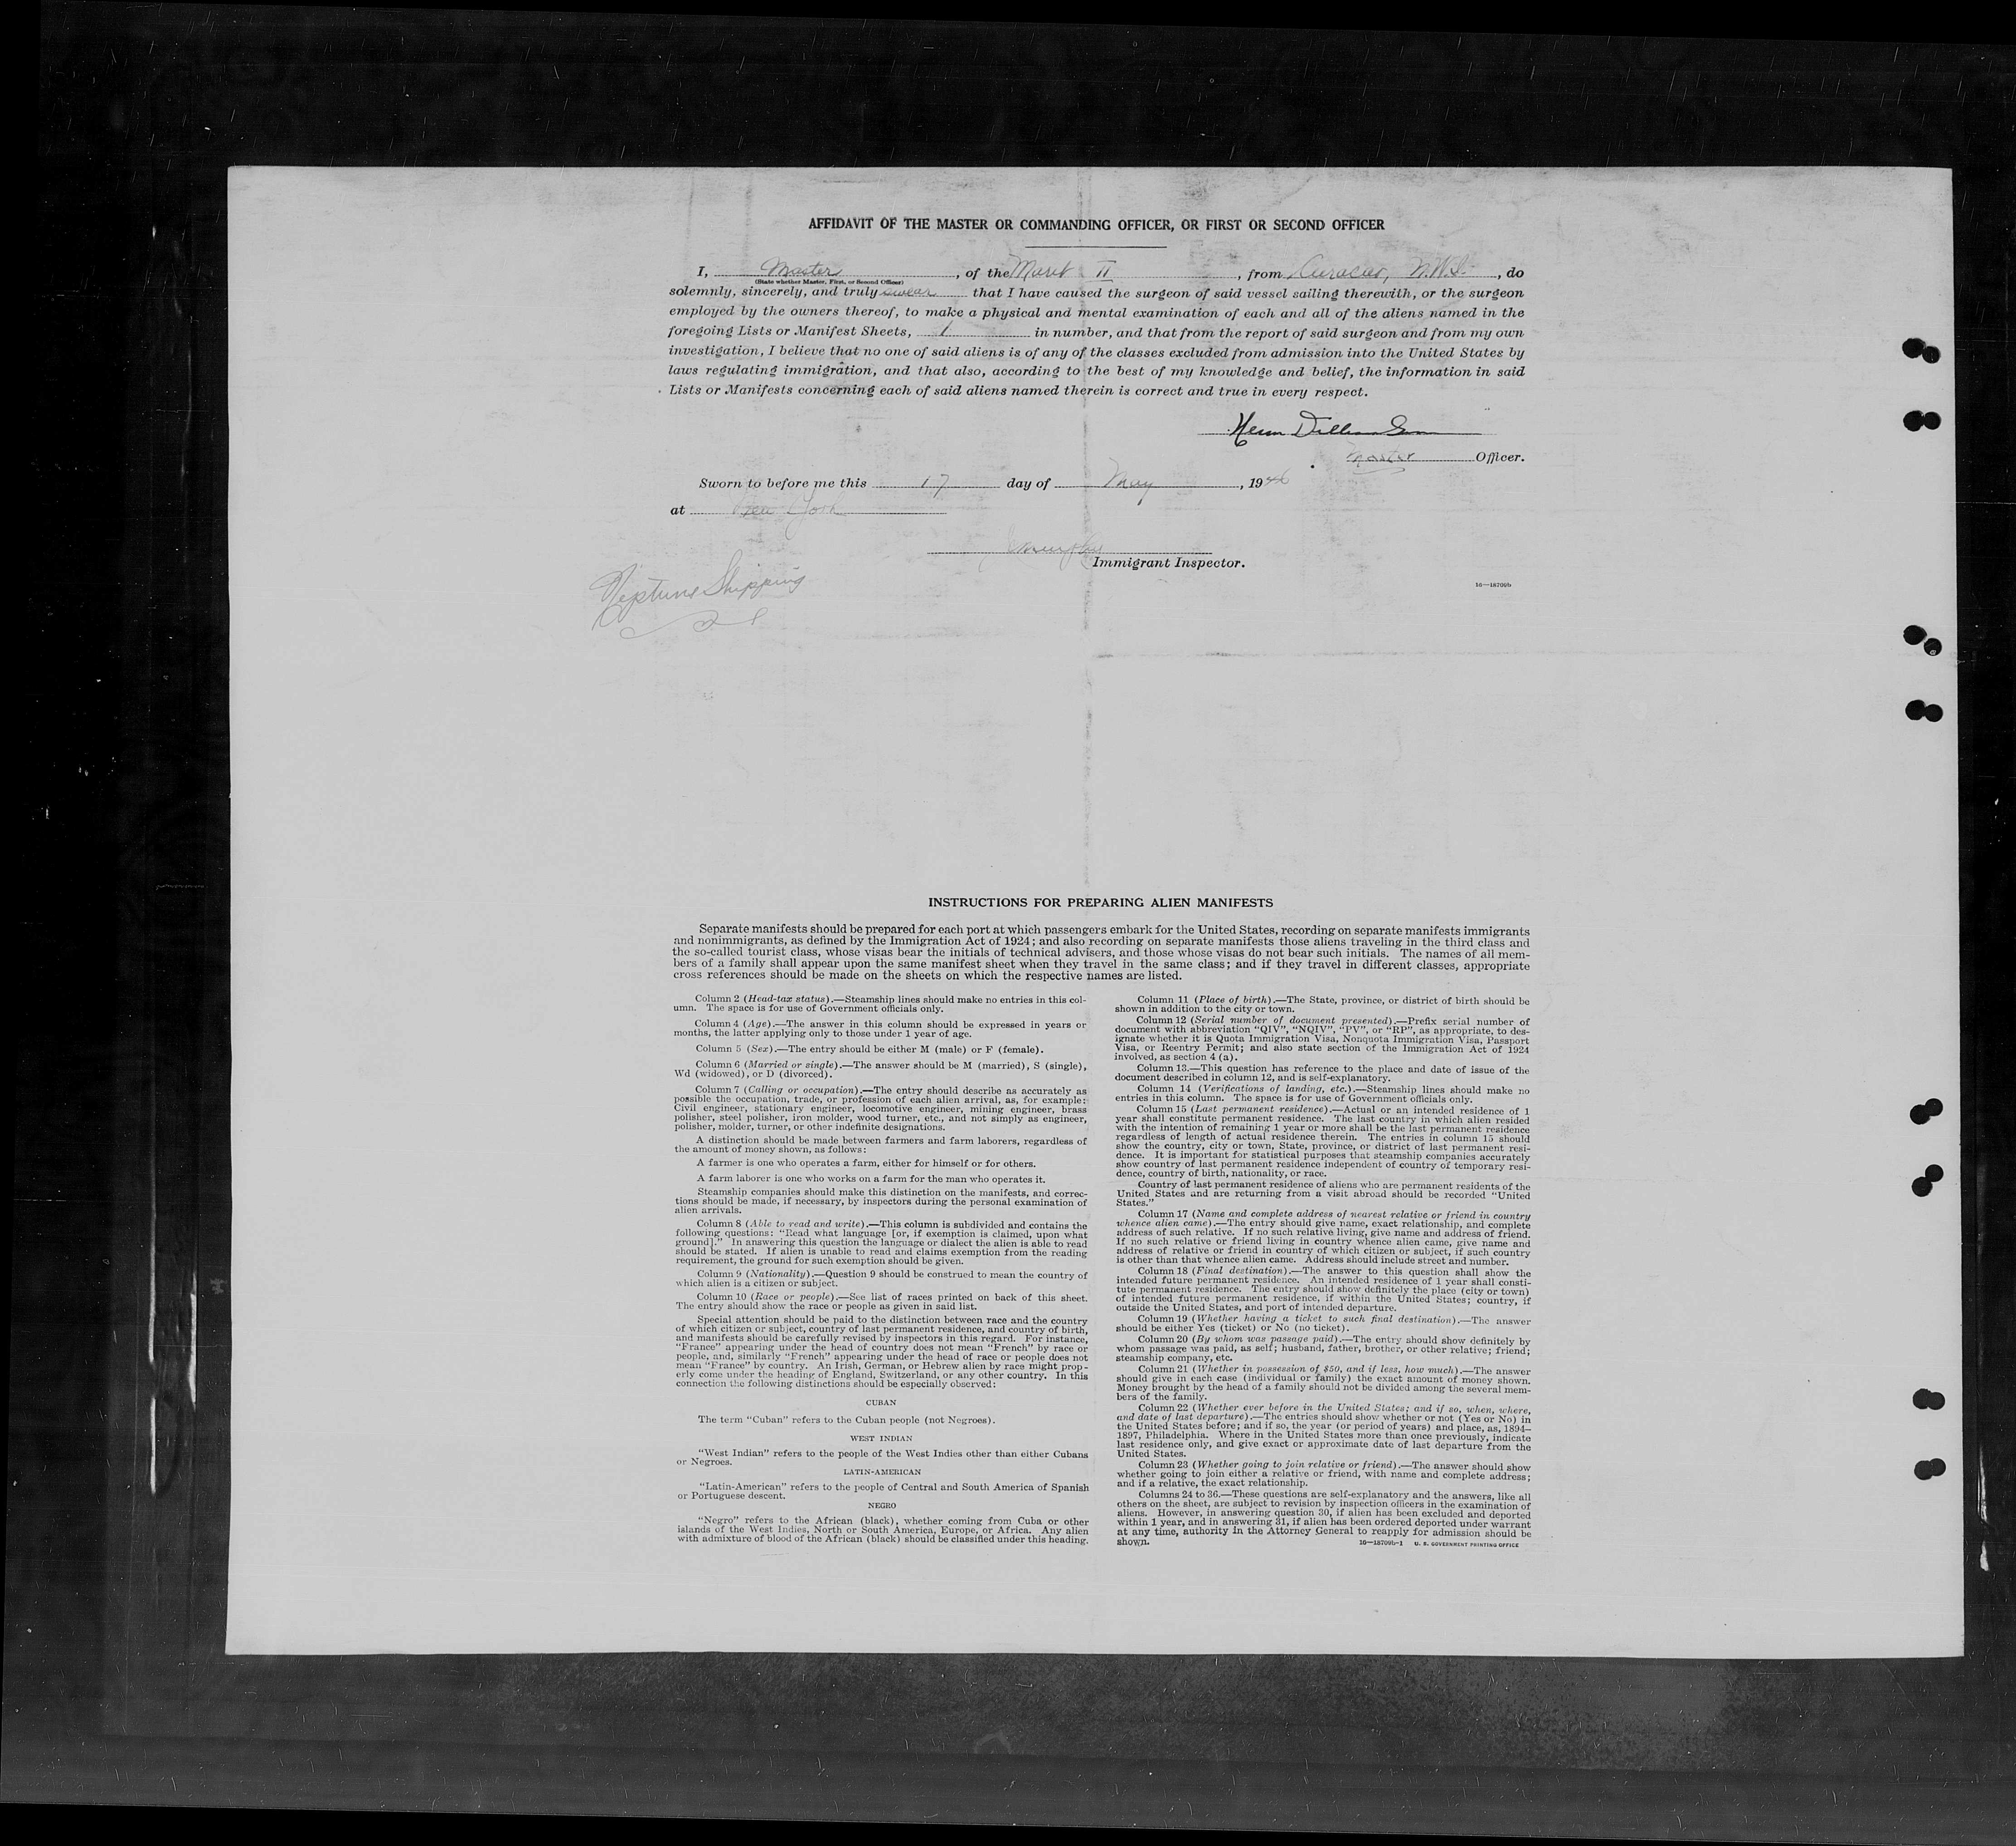 AFFIDAVIT OF THE MASTER OR COMMANDING OFFICER, OR FIRST OR SECOND OFFICER
I, Master, of the Maret II, from Curacao, N.W.I., do
(State whether Master, First, or Second Officer)
solemnly, sincerely, and truly swear that I have caused the surgeon of said vessel sailing therewith, or the surgeon
employed by the owners thereof, to make a physical and mental examination of each and all of the aliens named in the
foregoing Lists or Manifest Sheets, 1 in number, and that from the report of said surgeon and from my own
investigation, I believe that no one of said aliens is of any of the classes excluded from admission into the United States by
laws regulating immigration, and that also, according to the best of my knowledge and belief, the information in said
Lists or Manifests concerning each of said aliens named therein is correct and true in every respect.
Master Officer.
Sworn to before me this 17 day of May, 1946
at New York
Immigrant Inspector.
Neptune Shipping
16—18709b
INSTRUCTIONS FOR PREPARING ALIEN MANIFESTS
Separate manifests should be prepared for each port at which passengers embark for the United States, recording on separate manifests immigrants
and nonimmigrants, as defined by the Immigration Act of 1924; and also recording on separate manifests those aliens traveling in the third class and
the so-called tourist class, whose visas bear the initials of technical advisers, and those whose visas do not bear such initials. The names of all mem-
bers of a family shall appear upon the same manifest sheet when they travel in the same class; and if they travel in different classes, appropriate
cross references should be made on the sheets on which the respective names are listed.
Column 2 (Head-tax status).—Steamship lines should make no entries in this col-
umn. The space is for use of Government officials only.
Column 4 (Age).—The answer in this column should be expressed in years or
months, the latter applying only to those under 1 year of age.
Column 5 (Sex).—The entry should be either M (male) or F (female).
Column 6 (Married or single).—The answer should be M (married), S (single),
Wd (widowed), or D (divorced).
Column 7 (Calling or occupation).—The entry should describe as accurately as
possible the occupation, trade, or profession of each alien arrival, as, for example:
Civil engineer, stationary engineer, locomotive engineer, mining engineer, brass
polisher, steel polisher, iron molder, wood turner, etc., and not simply as engineer,
polisher, molder, turner, or other indefinite designations.
A distinction should be made between farmers and farm laborers, regardless of
the amount of money shown, as follows:
A farmer is one who operates a farm, either for himself or for others.
A farm laborer is one who works on a farm for the man who operates it.
Steamship companies should make this distinction on the manifests, and correc-
tions should be made, if necessary, by inspectors during the personal examination of
alien arrivals.
Column 8 (Able to read and write).—This column is subdivided and contains the
following questions: "Read what language [or, if exemption is claimed, upon what
ground]." In answering this question the language or dialect the alien is able to read
should be stated. If alien is unable to read and claims exemption from the reading
requirement, the ground for such exemption should be given.
Column 9 (Nationality).—Question 9 should be construed to mean the country of
which alien is a citizen or subject.
Column 10 (Race or people).—See list of races printed on back of this sheet.
The entry should show the race or people as given in said list.
Special attention should be paid to the distinction between race and the country
of which citizen or subject, country of last permanent residence, and country of birth,
and manifests should be carefully revised by inspectors in this regard. For instance,
"France" appearing under the head of country does not mean "French" by race or
people, and, similarly "French" appearing under the head of race or people does not
mean "France" by country. An Irish, German, or Hebrew alien by race might prop-
erly come under the heading of England, Switzerland, or any other country. In this
connection the following distinctions should be especially observed:
CUBAN
The term "Cuban" refers to the Cuban people (not Negroes).
WEST INDIAN
"West Indian" refers to the people of the West Indies other than either Cubans
or Negroes.
LATIN-AMERICAN
"Latin-American" refers to the people of Central and South America of Spanish
or Portuguese descent.
NEGRO
"Negro" refers to the African (black), whether coming from Cuba or other
islands of the West Indies, North or South America, Europe, or Africa. Any alien
with admixture of blood of the African (black) should be classified under this heading.
Column 11 (Place of birth).—The State, province, or district of birth should be
shown in addition to the city or town.
Column 12 (Serial number of document presented).—Prefix serial number of
document with abbreviation "QIV", "NQIV", "PV", or "RP", as appropriate, to des-
ignate whether it is Quota Immigration Visa, Nonquota Immigration Visa, Passport
Visa, or Reentry Permit; and also state section of the Immigration Act of 1924
involved, as section 4 (a).
Column 13.—This question has reference to the place and date of issue of the
document described in column 12, and is self-explanatory.
Column 14 (Verifications of landing, etc.).—Steamship lines should make no
entries in this column. The space is for use of Government officials only.
Column 15 (Last permanent residence).—Actual or an intended residence of 1
year shall constitute permanent residence. The last country in which alien resided
with the intention of remaining 1 year or more shall be the last permanent residence
regardless of length of actual residence therein. The entries in column 15 should
show the country, city or town, State, province, or district of last permanent resi-
dence. It is important for statistical purposes that steamship companies accurately
show country of last permanent residence independent of country of temporary resi-
dence, country of birth, nationality, or race.
Country of last permanent residence of aliens who are permanent residents of the
United States and are returning from a visit abroad should be recorded "United
States."
Column 17 (Name and complete address of nearest relative or friend in country
whence alien came).—The entry should give name, exact relationship, and complete
address of such relative. If no such relative living, give name and address of friend.
If no such relative or friend living in country whence alien came, give name and
address of relative or friend in country of which citizen or subject, if such country
is other than that whence alien came. Address should include street and number.
Column 18 (Final destination).—The answer to this question shall show the
intended future permanent residence. An intended residence of 1 year shall consti-
tute permanent residence. The entry should show definitely the place (city or town)
of intended future permanent residence, if within the United States; country, if
outside the United States, and port of intended departure.
Column 19 (Whether having a ticket to such final destination).—The answer
should be either Yes (ticket) or No (no ticket).
Column 20 (By whom was passage paid).—The entry should show definitely by
whom passage was paid, as self; husband, father, brother, or other relative; friend;
steamship company, etc.
Column 21 (Whether in possession of $50, and if less, how much).—The answer
should give in each case (individual or family) the exact amount of money shown.
Money brought by the head of a family should not be divided among the several mem-
bers of the family.
Column 22 (Whether ever before in the United States; and if so, when, where,
and date of last departure).—The entries should show whether or not (Yes or No) in
the United States before; and if so, the year (or period of years) and place, as, 1894–
1897, Philadelphia. Where in the United States more than once previously, indicate
last residence only, and give exact or approximate date of last departure from the
United States.
Column 23 (Whether going to join relative or friend).—The answer should show
whether going to join either a relative or friend, with name and complete address;
and if a relative, the exact relationship.
Columns 24 to 36.—These questions are self-explanatory and the answers, like all
others on the sheet, are subject to revision by inspection officers in the examination of
aliens. However, in answering question 30, if alien has been excluded and deported
within 1 year, and in answering 31, if alien has been ordered deported under warrant
at any time, authority in the Attorney General to reapply for admission should be
shown.
16—18709b-1 U. S. GOVERNMENT PRINTING OFFICE